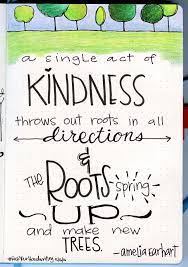 a single act of
KINDNESS
throws out roots in all
directions
&
THE ROOTS spring
UP
and make new
TREES.
-amelia earhart